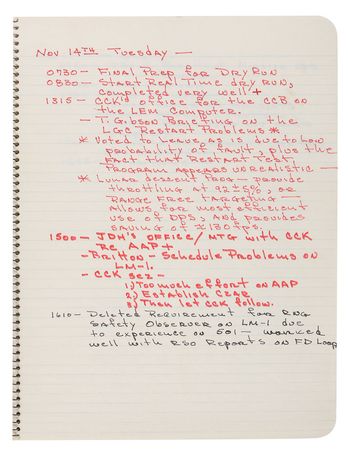 Nov 14TH Tuesday —
0730 — Final Prep for Dry Run
0830 — Start Real Time dry run,
completed very well +
1315 — CCK's office for the CCB on
the LEM Computer
— T. Gibson Briefing on the
LGC Restart Problems *
* Voted to leave as is due to low
probability of fault, plus the
fact that Restart Test
Program appears unrealistic —
* Lunar descent prog — provide
throttling at 92 ± 5%, or
Range Free Targeting —
Allows for most efficient
use of DPS, and provides
saving of ≈ 130 fps.
1500 — JDH's office / MTG with CCK
Re AAP +
— Britton — Schedule Problems on
LM-1.
— CCK sez —
1) Too much effort on AAP
2) Establish CEGE
3) Then let CCK follow.
1610 — Deleted Requirement for RNG
Safety Observer on LM-1 due
to experience on 501 — worked
well with RSO Reports on FD Loop